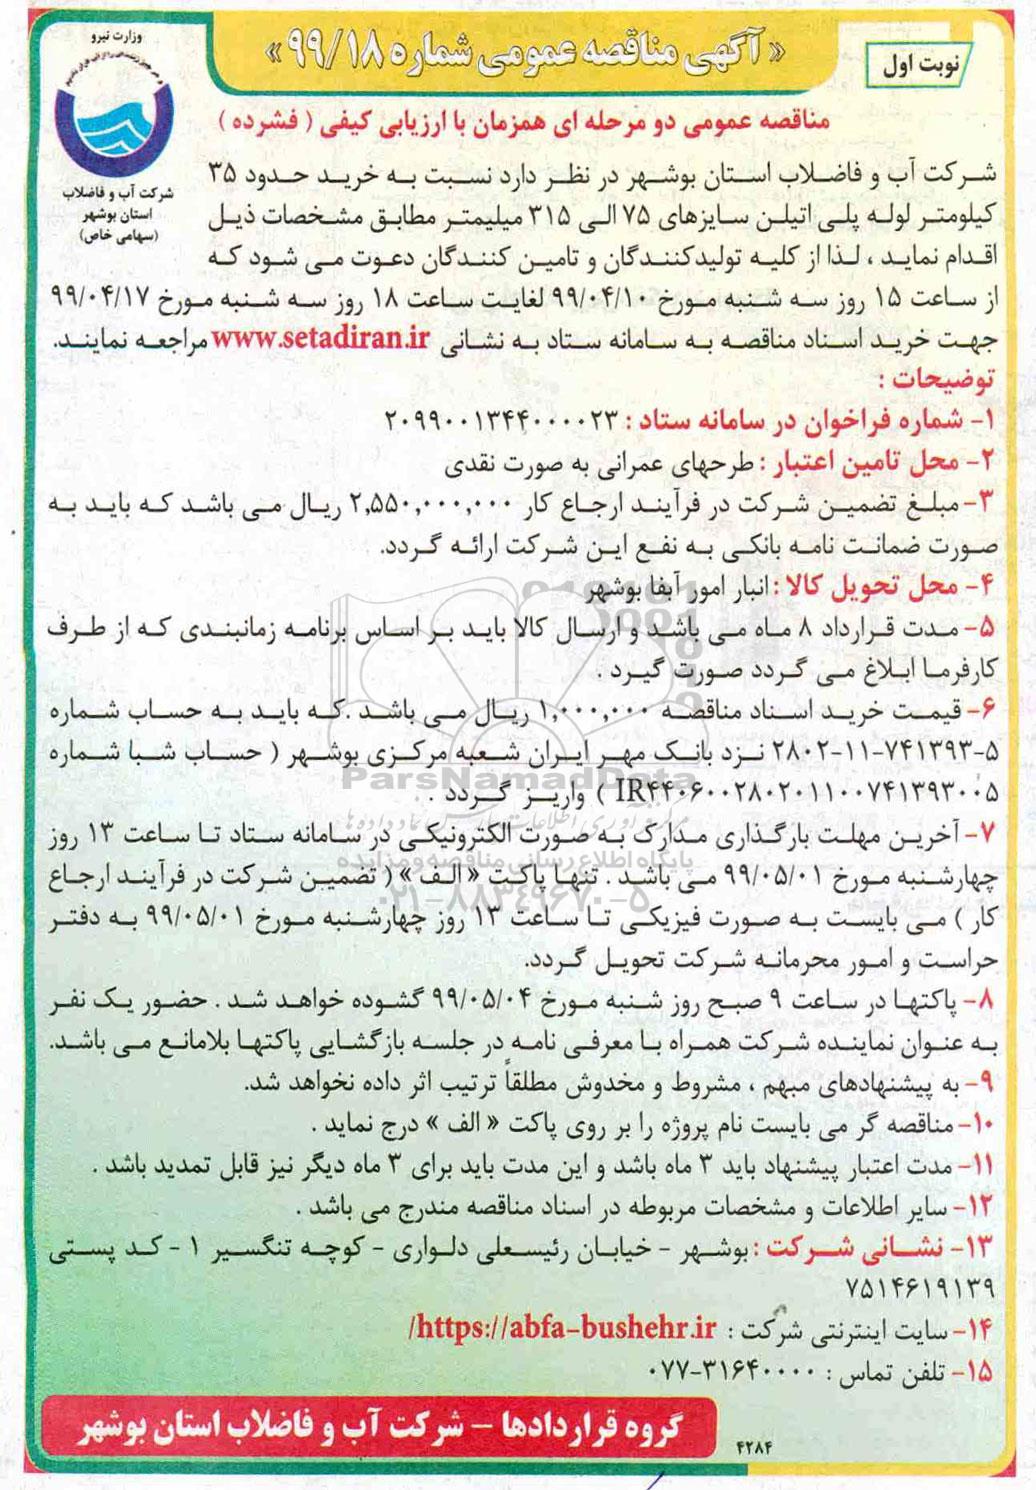 وزارت نیرو
« آگهی مناقصه عمومی شماره ۹۹/۱۸ »
نوبت اول
شرکت آب و فاضلاب
استان بوشهر
(سهامی خاص)
مناقصه عمومی دو مرحله ای همزمان با ارزیابی کیفی ( فشرده )
شرکت آب و فاضلاب استان بوشهر در نظر دارد نسبت به خرید حدود ۳۵
کیلومتر لوله پلی اتیلن سایزهای ۷۵ الی ۳۱۵ میلیمتر مطابق مشخصات ذیل
اقدام نماید ، لذا از کلیه تولیدکنندگان و تامین کنندگان دعوت می شود که
از ساعت ۱۵ روز سه شنبه مورخ ۹۹/۰۴/۱۰ لغایت ساعت ۱۸ روز سه شنبه مورخ ۹۹/۰۴/۱۷
جهت خرید اسناد مناقصه به سامانه ستاد به نشانی www.setadiran.ir مراجعه نمایند.
توضیحات :
۱- شماره فراخوان در سامانه ستاد : ۲۰۹۹۰۰۱۳۴۴۰۰۰۰۲۳
۲- محل تامین اعتبار : طرحهای عمرانی به صورت نقدی
۳- مبلغ تضمین شرکت در فرآیند ارجاع کار ۲,۵۵۰,۰۰۰,۰۰۰ ریال می باشد که باید به
صورت ضمانت نامه بانکی به نفع این شرکت ارائه گردد.
۴- محل تحویل کالا : انبار امور آبفا بوشهر
۵- مدت قرارداد ۸ ماه می باشد و ارسال کالا باید بر اساس برنامه زمانبندی که از طرف
کارفرما ابلاغ می گردد صورت گیرد .
۶- قیمت خرید اسناد مناقصه ۱,۰۰۰,۰۰۰ ریال می باشد .که باید به حساب شماره
۲۸۰۲-۱۱-۷۴۱۳۹۳-۵ نزد بانک مهر ایران شعبه مرکزی بوشهر ( حساب شبا شماره
IR۴۴۰۶۰۰۲۸۰۲۰۱۱۰۰۷۴۱۳۹۳۰۰۵ ) واریز گردد .
ParsNamadData
۷- آخرین مهلت بارگذاری مدارک به صورت الکترونیکی در سامانه ستاد تا ساعت ۱۳ روز
پایگاه اطلاع رسانی مناقصه و مزایده
چهارشنبه مورخ ۹۹/۰۵/۰۱ می باشد . تنها پاکت « الف » ( تضمین شرکت در فرآیند ارجاع
۰۲۱-۸۸۳۴۹۶۷۰-۵
کار ) می بایست به صورت فیزیکی تا ساعت ۱۳ روز چهارشنبه مورخ ۹۹/۰۵/۰۱ به دفتر
حراست و امور محرمانه شرکت تحویل گردد.
۸- پاکتها در ساعت ۹ صبح روز شنبه مورخ ۹۹/۰۵/۰۴ گشوده خواهد شد . حضور یک نفر
به عنوان نماینده شرکت همراه با معرفی نامه در جلسه بازگشایی پاکتها بلامانع می باشد.
۹- به پیشنهادهای مبهم ، مشروط و مخدوش مطلقاً ترتیب اثر داده نخواهد شد.
۱۰- مناقصه گر می بایست نام پروژه را بر روی پاکت « الف » درج نماید .
۱۱- مدت اعتبار پیشنهاد باید ۳ ماه باشد و این مدت باید برای ۳ ماه دیگر نیز قابل تمدید باشد .
۱۲- سایر اطلاعات و مشخصات مربوطه در اسناد مناقصه مندرج می باشد .
۱۳- نشانی شرکت : بوشهر - خیابان رئیسعلی دلواری - کوچه تنگسیر ۱ - کد پستی
۷۵۱۴۶۱۹۱۳۹
۱۴- سایت اینترنتی شرکت : https://abfa-bushehr.ir/
۱۵- تلفن تماس : ۰۷۷-۳۱۶۴۰۰۰۰
گروه قراردادها - شرکت آب و فاضلاب استان بوشهر
۴۲۸۴